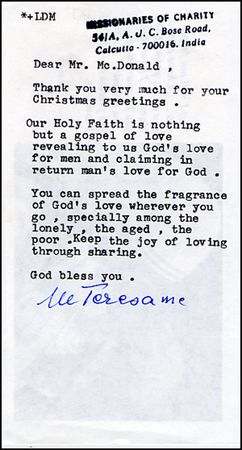 *+LDM
MISSIONARIES OF CHARITY
54/A, A. J. C. Bose Road,
Calcutta - 700016. India
Dear Mr. Mc.Donald ,
Thank you very much for your
Christmas greetings .
Our Holy Faith is nothing
but a gospel of love
revealing to us God's love
for men and claiming in
return man's love for God .
You can spread the fragrance
of God's love wherever you
go , specially among the
lonely , the aged , the
poor .Keep the joy of loving
through sharing.
God bless you .
M Teresa mc